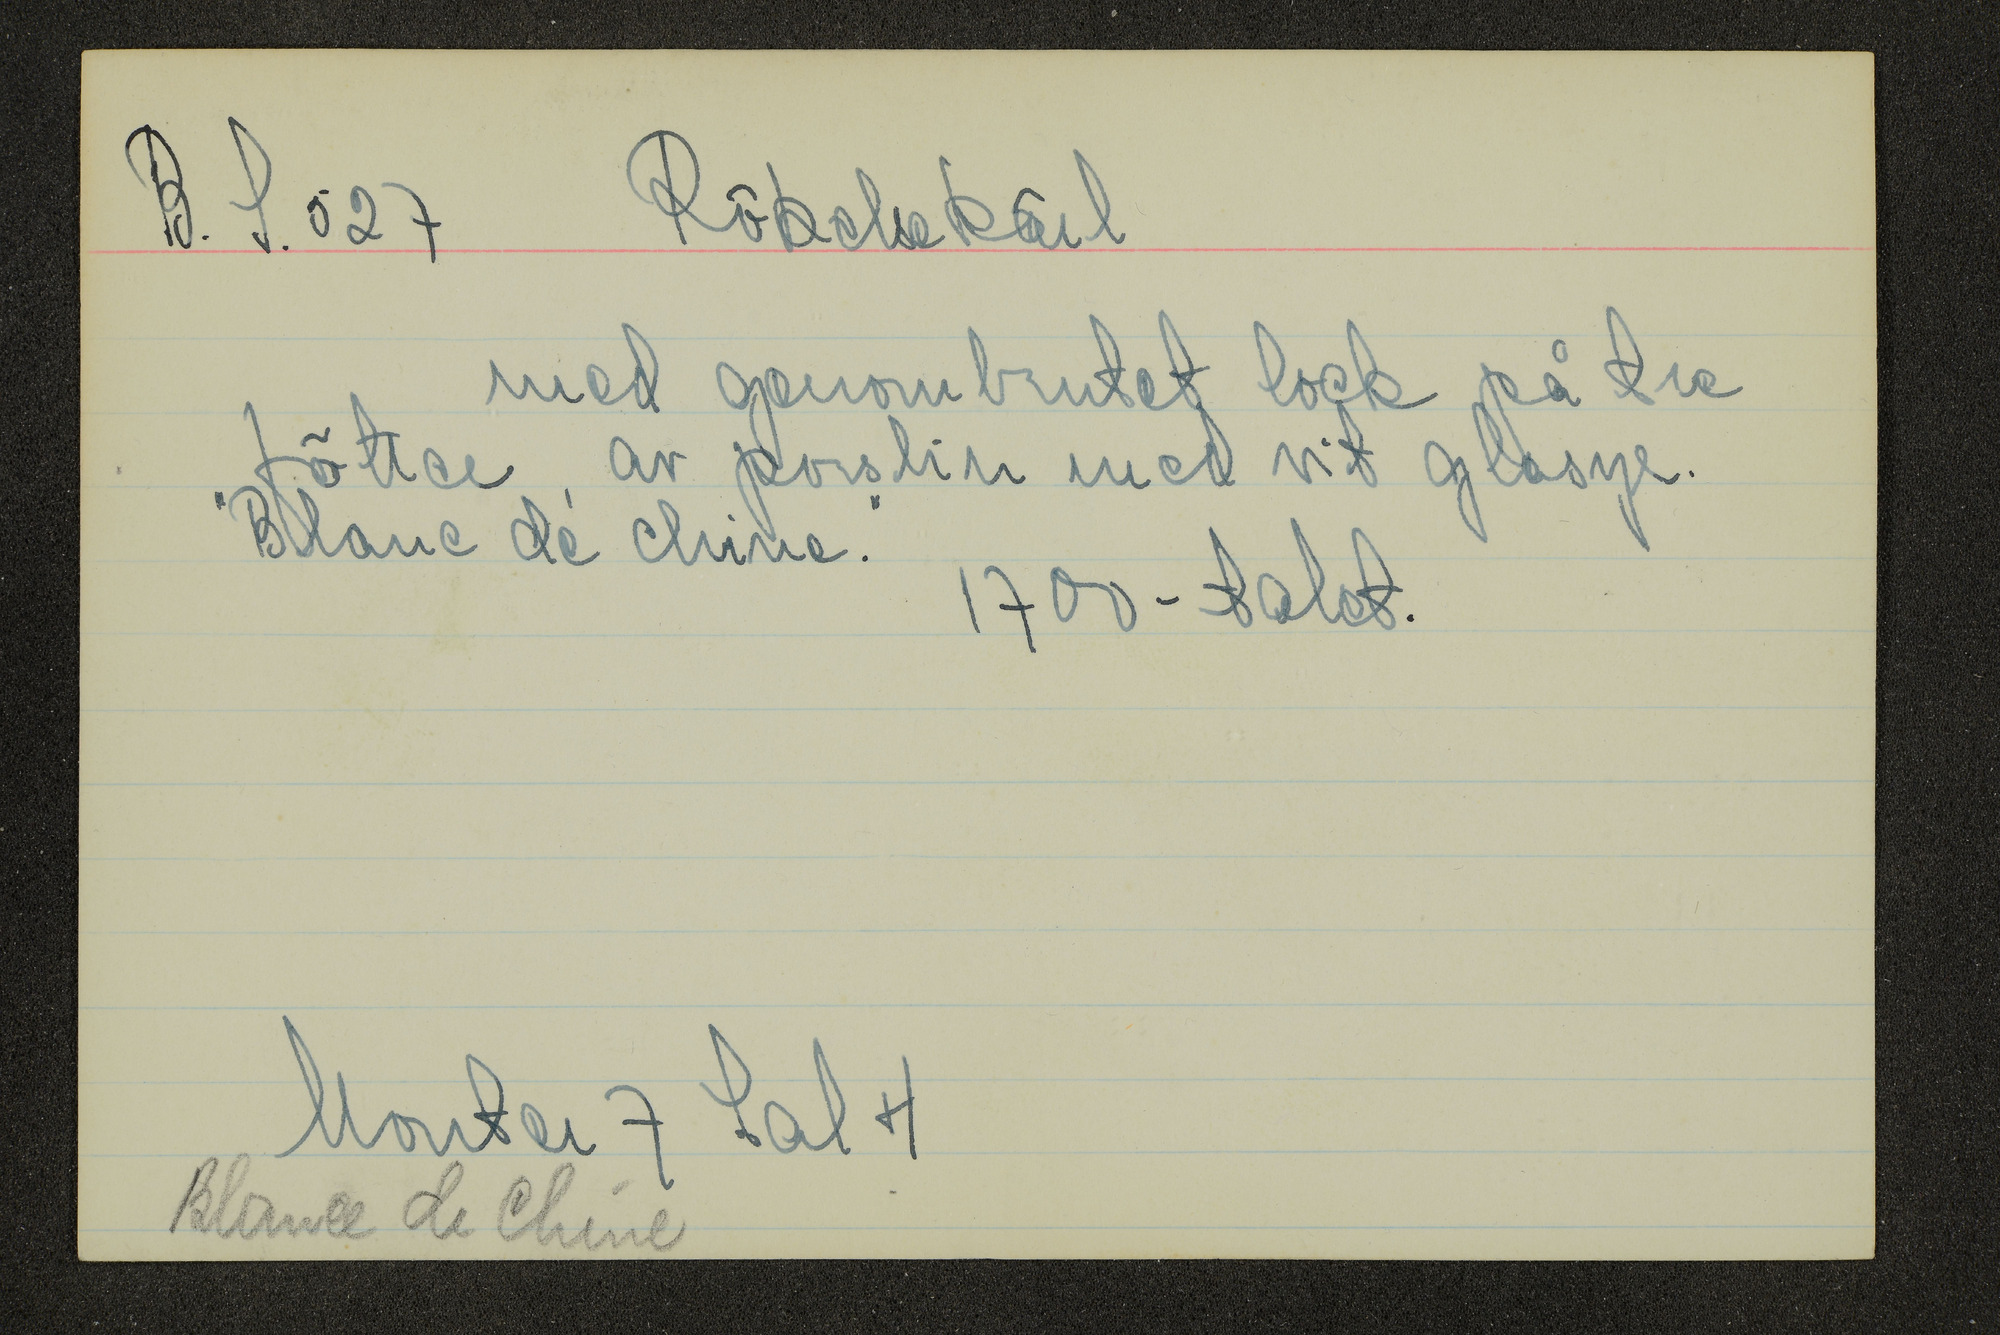 B. S. 027 Rökelsekärl
med genombrutet lock på tre
fötter av porslin med vit glasyr.
"Blanc dé chine."
1700-talet.
Monter 7 Sal H
Blance de Chine